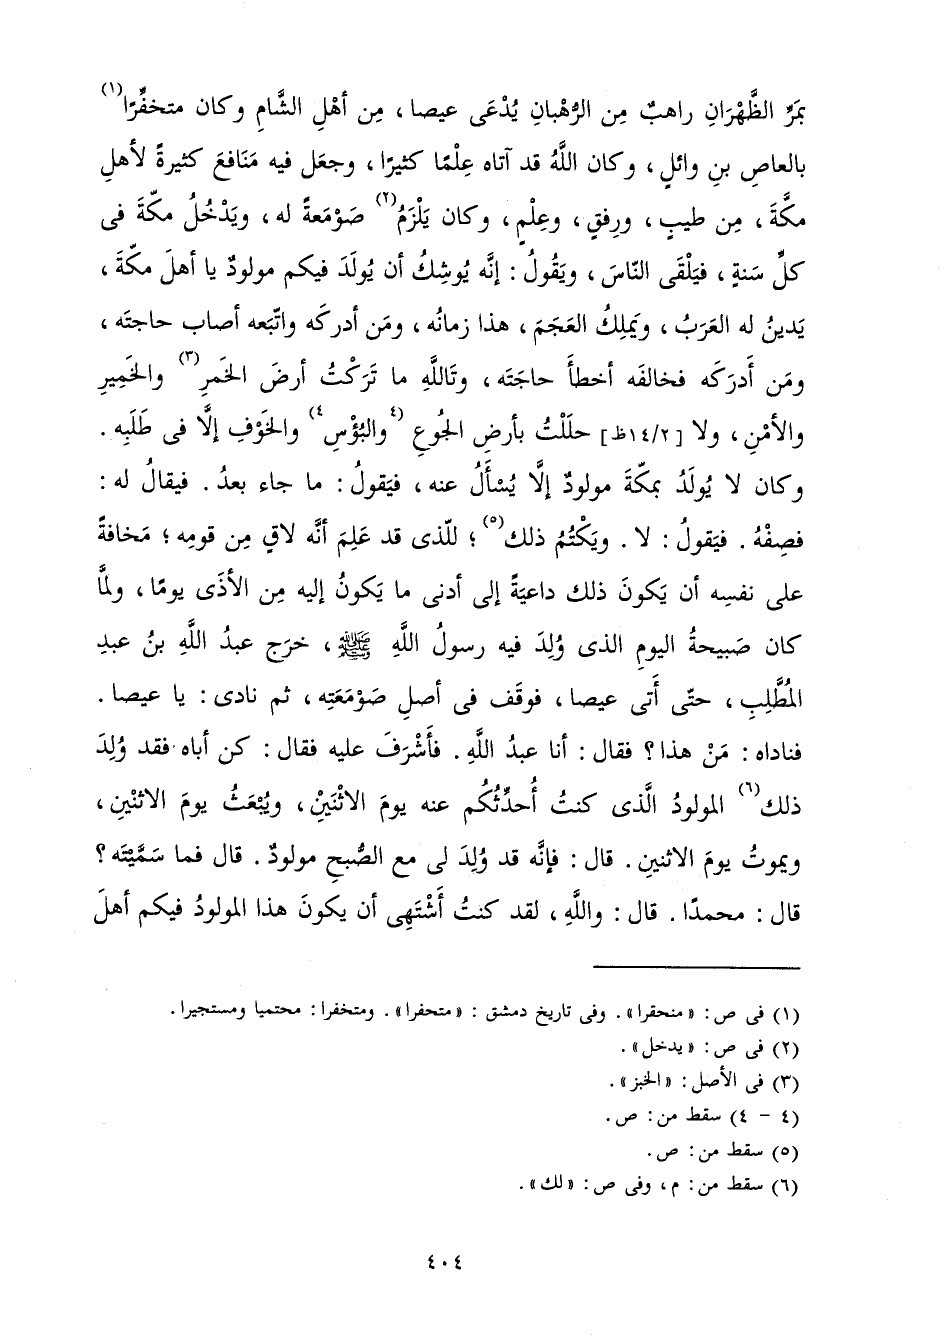 بمَرِّ الظَّهْرَانِ راهبٌ مِن الرُّهْبانِ يُدْعَى عيصا ، مِن أهْلِ الشَّامِ وكان متخفِّرًا(١)
بالعاصِ بنِ وائلٍ ، وكان اللَّهُ قد آتاه عِلْمًا كثيرًا ، وجعَل فيه مَنَافعَ كثيرةً لأهلِ
مكَّةَ ، مِن طيبٍ ، ورِفقٍ ، وعِلْمٍ ، وكان يَلْزَمُ(٢) صَوْمَعةً له ، ويَدْخُلُ مكّةَ فى
كلِّ سَنةٍ ، فيَلْقَى النّاسَ ، ويَقُولُ : إنَّه يُوشِكُ أن يُولَدَ فيكم مولودٌ يا أهلَ مكّةَ ،
يَدينُ له العَرَبُ ، ويَملِكُ العَجَمَ ، هذا زمانُه ، ومَن أدركَه واتّبَعه أصاب حاجتَه ،
ومَن أَدرَكَه فخالفَه أخطأَ حاجَتَه ، وتَاللَّهِ ما تَرَكْتُ أرضَ الخَمرِ(٣) والخَمِيرِ
والأمْنِ ، ولا [١٤/٢ظ] حلَلْتُ بأرضِ الجُوعِ (٤والبُؤْسِ٤) والخَوْفِ إلَّا فى طَلَبِه .
وكان لا يُولَدُ بمكّةَ مولودٌ إلَّا يُسْأَلُ عنه ، فيَقولُ : ما جاء بعدُ . فيقالُ له :
فصِفْهُ . فيَقولُ : لا . ويَكْتُمُ ذلك(٥) ؛ للّذى قد عَلِمَ أنَّه لاقٍ مِن قومِه ؛ مَخافةً
على نفسِه أن يَكونَ ذلك داعيَةً إلى أدنى ما يَكونُ إليه مِن الأذَى يومًا ، ولمَّا
كان صَبيحةُ اليومِ الذى وُلِدَ فيه رسولُ اللَّهِ ﷺ ، خرَج عبدُ اللَّهِ بنُ عبدِ
المُطَّلِبِ ، حتّى أَتى عيصا ، فوقَف فى أصلِ صَوْمَعَتِه ، ثم نادى : يا عيصا .
فناداه : مَنْ هذا ؟ فقال : أنا عبدُ اللَّهِ . فأَشْرَفَ عليه فقال : كن أباه فقد وُلِدَ
ذلك(٦) المولودُ الَّذى كنتُ أُحدِّثُكُم عنه يومَ الاثْنَيْنِ ، ويُبْعَثُ يومَ الاثنْينِ ،
ويموتُ يومَ الاثنينِ . قال : فإنَّه قد وُلِدَ لى مع الصُّبحِ مولودٌ . قال فما سَمَّيْتَه ؟
قال : محمدًا . قال : واللَّهِ ، لقد كنتُ أَشْتَهِى أن يكونَ هذا المولودُ فيكم أهلَ
(١) فى ص : « منحقرا » . وفى تاريخ دمشق : « متحفرا » . ومتخفرا : محتميا ومستجيرا .
(٢) فى ص : « يدخل » .
(٣) فى الأصل : « الخبز » .
(٤ - ٤) سقط من : ص .
(٥) سقط من : ص .
(٦) سقط من : م ، وفى ص : « لك » .
٤٠٤